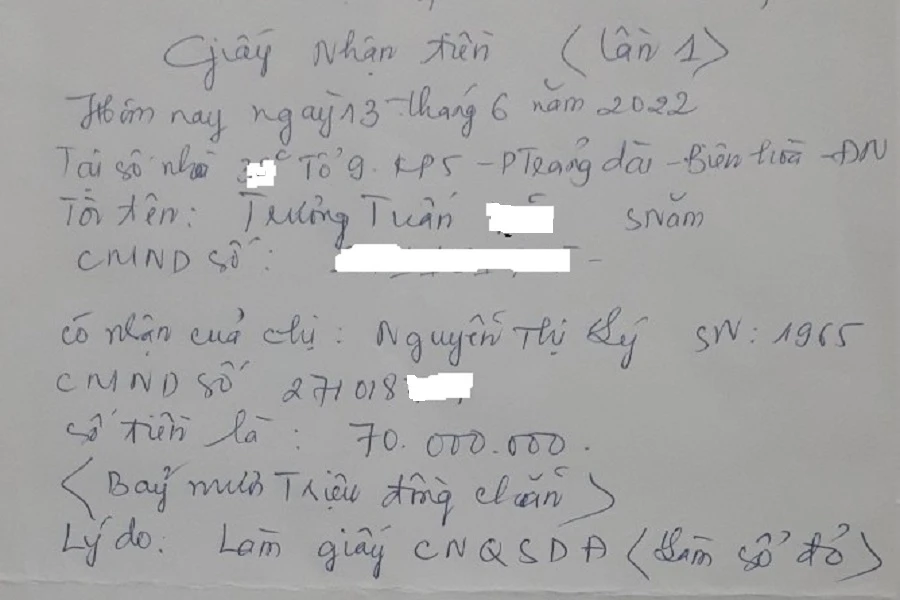 Giấy nhận tiền (lần 1)
Hôm nay ngày 13 tháng 6 năm 2022
Tại số nhà Tổ 9. KP5 - P Trảng dài - Biên hoà - ĐN
Tôi tên: Trương Tuấn SNăm
CMND số:
có nhận cuả chị: Nguyễn Thị Lý SN: 1965
CMND số 271018
số tiền là: 70.000.000.
(Bảy mươi Triệu đồng chẵn)
Lý do: Làm giấy CNQSDĐ (Làm sổ đỏ)